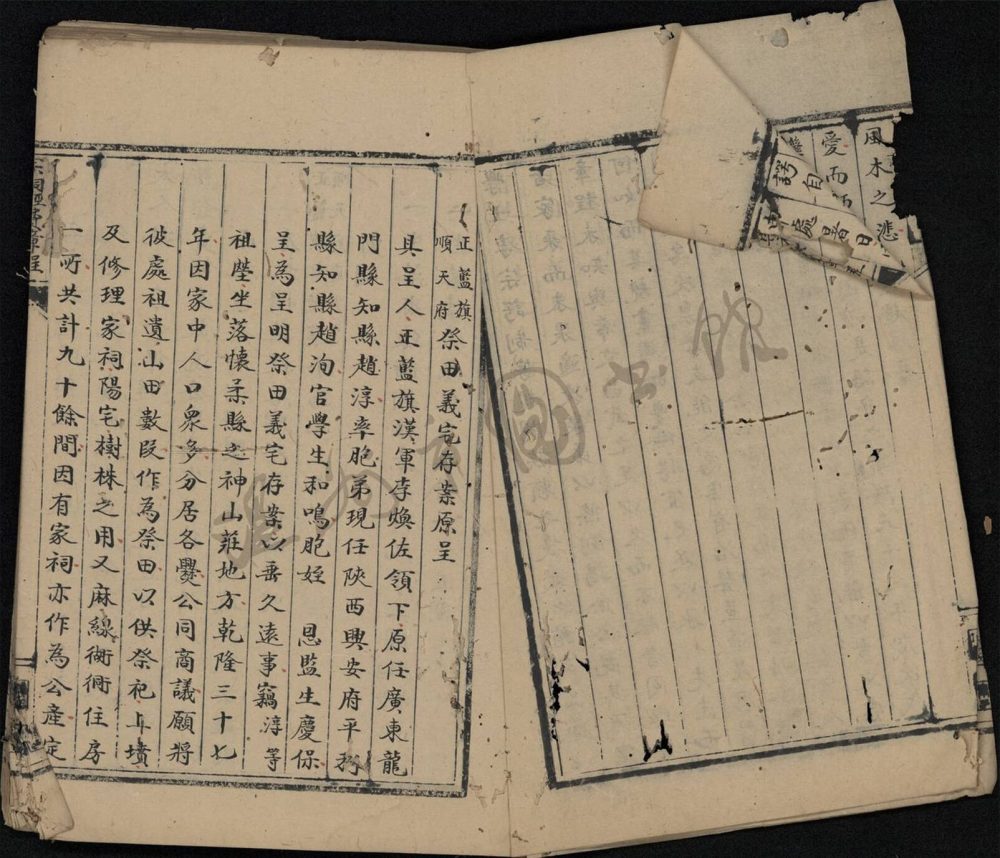 風木之悲
愛而
自
訪
處暑日
正藍旗
順天府
祭田義宅存案原呈
具呈人正藍旗漢軍李煥佐領下原任廣東龍
門縣知縣趙淳率胞弟現任陝西興安府平利
縣知縣趙洵官學生和鳴胞姪 恩監生慶保
呈為呈明祭田義宅存案以垂久遠事竊淳等
祖塋坐落懷柔縣之神山莊地方乾隆三十七
年因家中人口衆多分居各爨公同商議願將
彼處祖遺山田數段作為祭田以供祭祀上墳
及修理家祠陽宅樹株之用又麻線衚衕住房
一所共計九十餘間因有家祠亦作為公產定